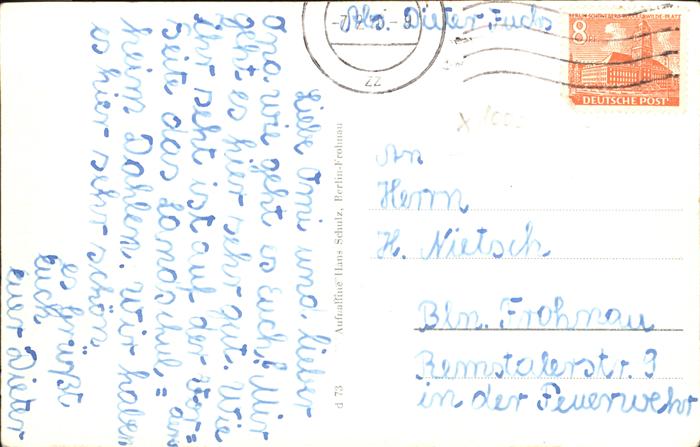 Abs. Dieter Fuchs
BERLIN-SCHÖNEBERG RUDOLF-WILDE-PLATZ
8
DEUTSCHE POST
Liebe Omi und lieber
Opa wie geht es Euch? Mir
geht es hier sehr gut. Wie
ihr seht ist auf der Vor=
Seite das Landschul=
heim Dahlem. Wir haben
es hier sehr schön
Es grüßt
Euch
euer Dieter
d 73 Aufnahme Hans Schulz, Berlin-Frohnau
An
Herrn
H. Nietsch
Bln. Frohnau
Remstalerstr. 9
in der Feuerwehr